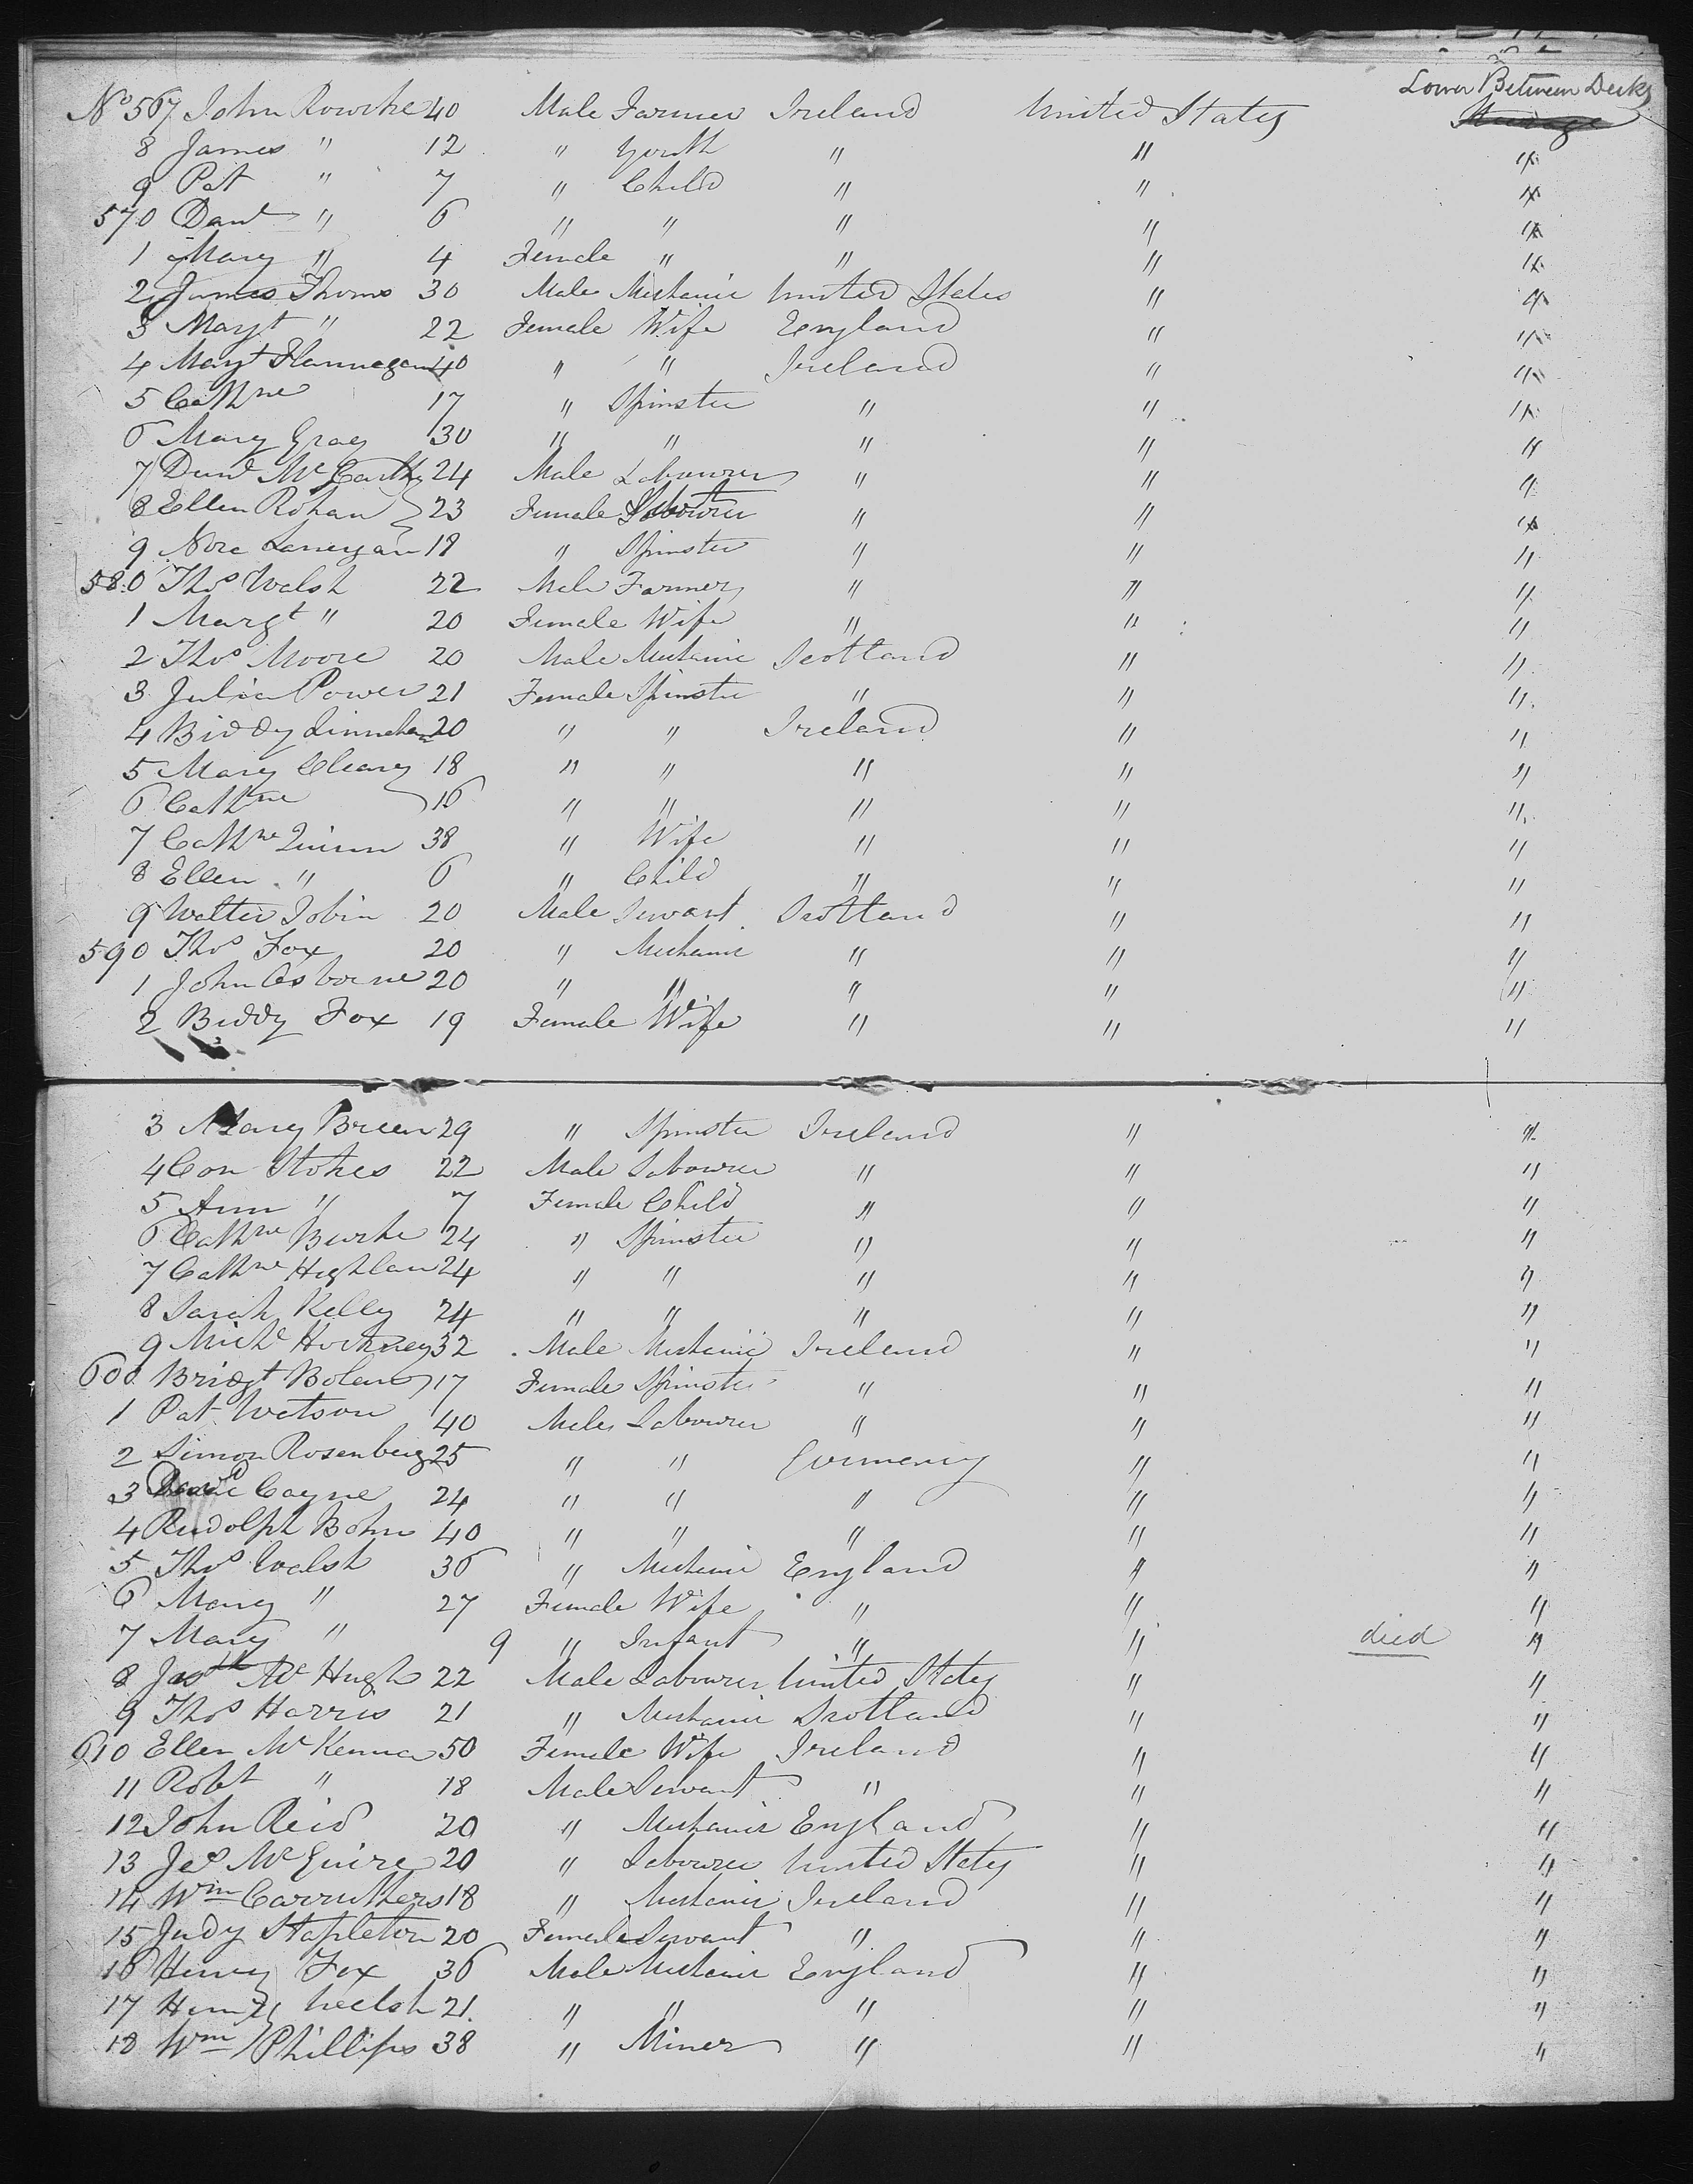 Lower Between Decks
No 567 John Rowrke 40 Male Farmer Ireland United States Steerage
8 James " 12 " Youth " " "
9 Pat " 7 " Child " " "
570 Danl " 6 " " " " "
1 Mary " 4 Female " " " "
2 James Thoms 30 Male Mechanic United States " "
3 Margt " 22 Female Wife England " "
4 Margt Flannagan 40 " " Ireland " "
5 Cathne 17 " Spinster " " "
6 Mary Gray 30 " " " " "
7 Danl McCarthy 24 Male Labourer " " "
8 Ellen Rohan 23 Female " " "
9 Nora Lanergan 18 " Spinster " " "
580 Thos Walsh 22 Male Farmer " " "
1 Margt " 20 Female Wife " " "
2 Thos Moore 20 Male Mechanic Scotland " "
3 Julia Power 21 Female Spinster " " "
4 Biddy Linnehan 20 " " Ireland " "
5 Mary Cleary 18 " " " " "
6 Cathne 16 " " " " "
7 Cathne Quinn 38 " Wife " " "
8 Ellen " 6 " Child " " "
9 Walter Tobin 20 Male Servant Scotland " "
590 Thos Fox 20 " Mechanic " " "
1 John Osborne 20 " " " " "
2 Biddy Fox 19 Female Wife " " "
3 Mary Breen 29 " Spinster Ireland " "
4 Con Stokes 22 Male Labourer " " "
5 Ann " 7 Female Child " " "
6 Cathne Burke 24 " Spinster " " "
7 Cathne Highlan 24 " " " " "
8 Sarah Kelly 24 " " " " "
9 Michl Hockney 32 Male Mechanic Ireland " "
600 Bridgt Boland 17 Female Spinster " " "
1 Pat Watson 40 Male Labourer " " "
2 Simon Rosenberg 25 " " Germany " "
3 Coyne 24 " " " " "
4 Rudolph Bohn 40 " " " " "
5 Thos Walsh 36 " Mechanic England " "
6 Mary " 27 Female Wife " " "
7 Mary " 9 " Infant " " died "
8 Jas McHugh 22 Male Labourer United States " "
9 Thos Harris 21 " Mechanic Scotland " "
610 Ellen McKenna 50 Female Wife Ireland " "
11 Robt " 18 Male Servant " " "
12 John Reid 20 " Mechanic England " "
13 Jas McGuire 20 " Labourer United States " "
14 Wm Carruthers 18 " Mechanic Ireland " "
15 Judy Stapleton 20 Female Servant " " "
16 Henry Fox 36 Male Mechanic England " "
17 Henry Welsh 21 " " " " "
18 Wm Phillips 38 " Miner " " "